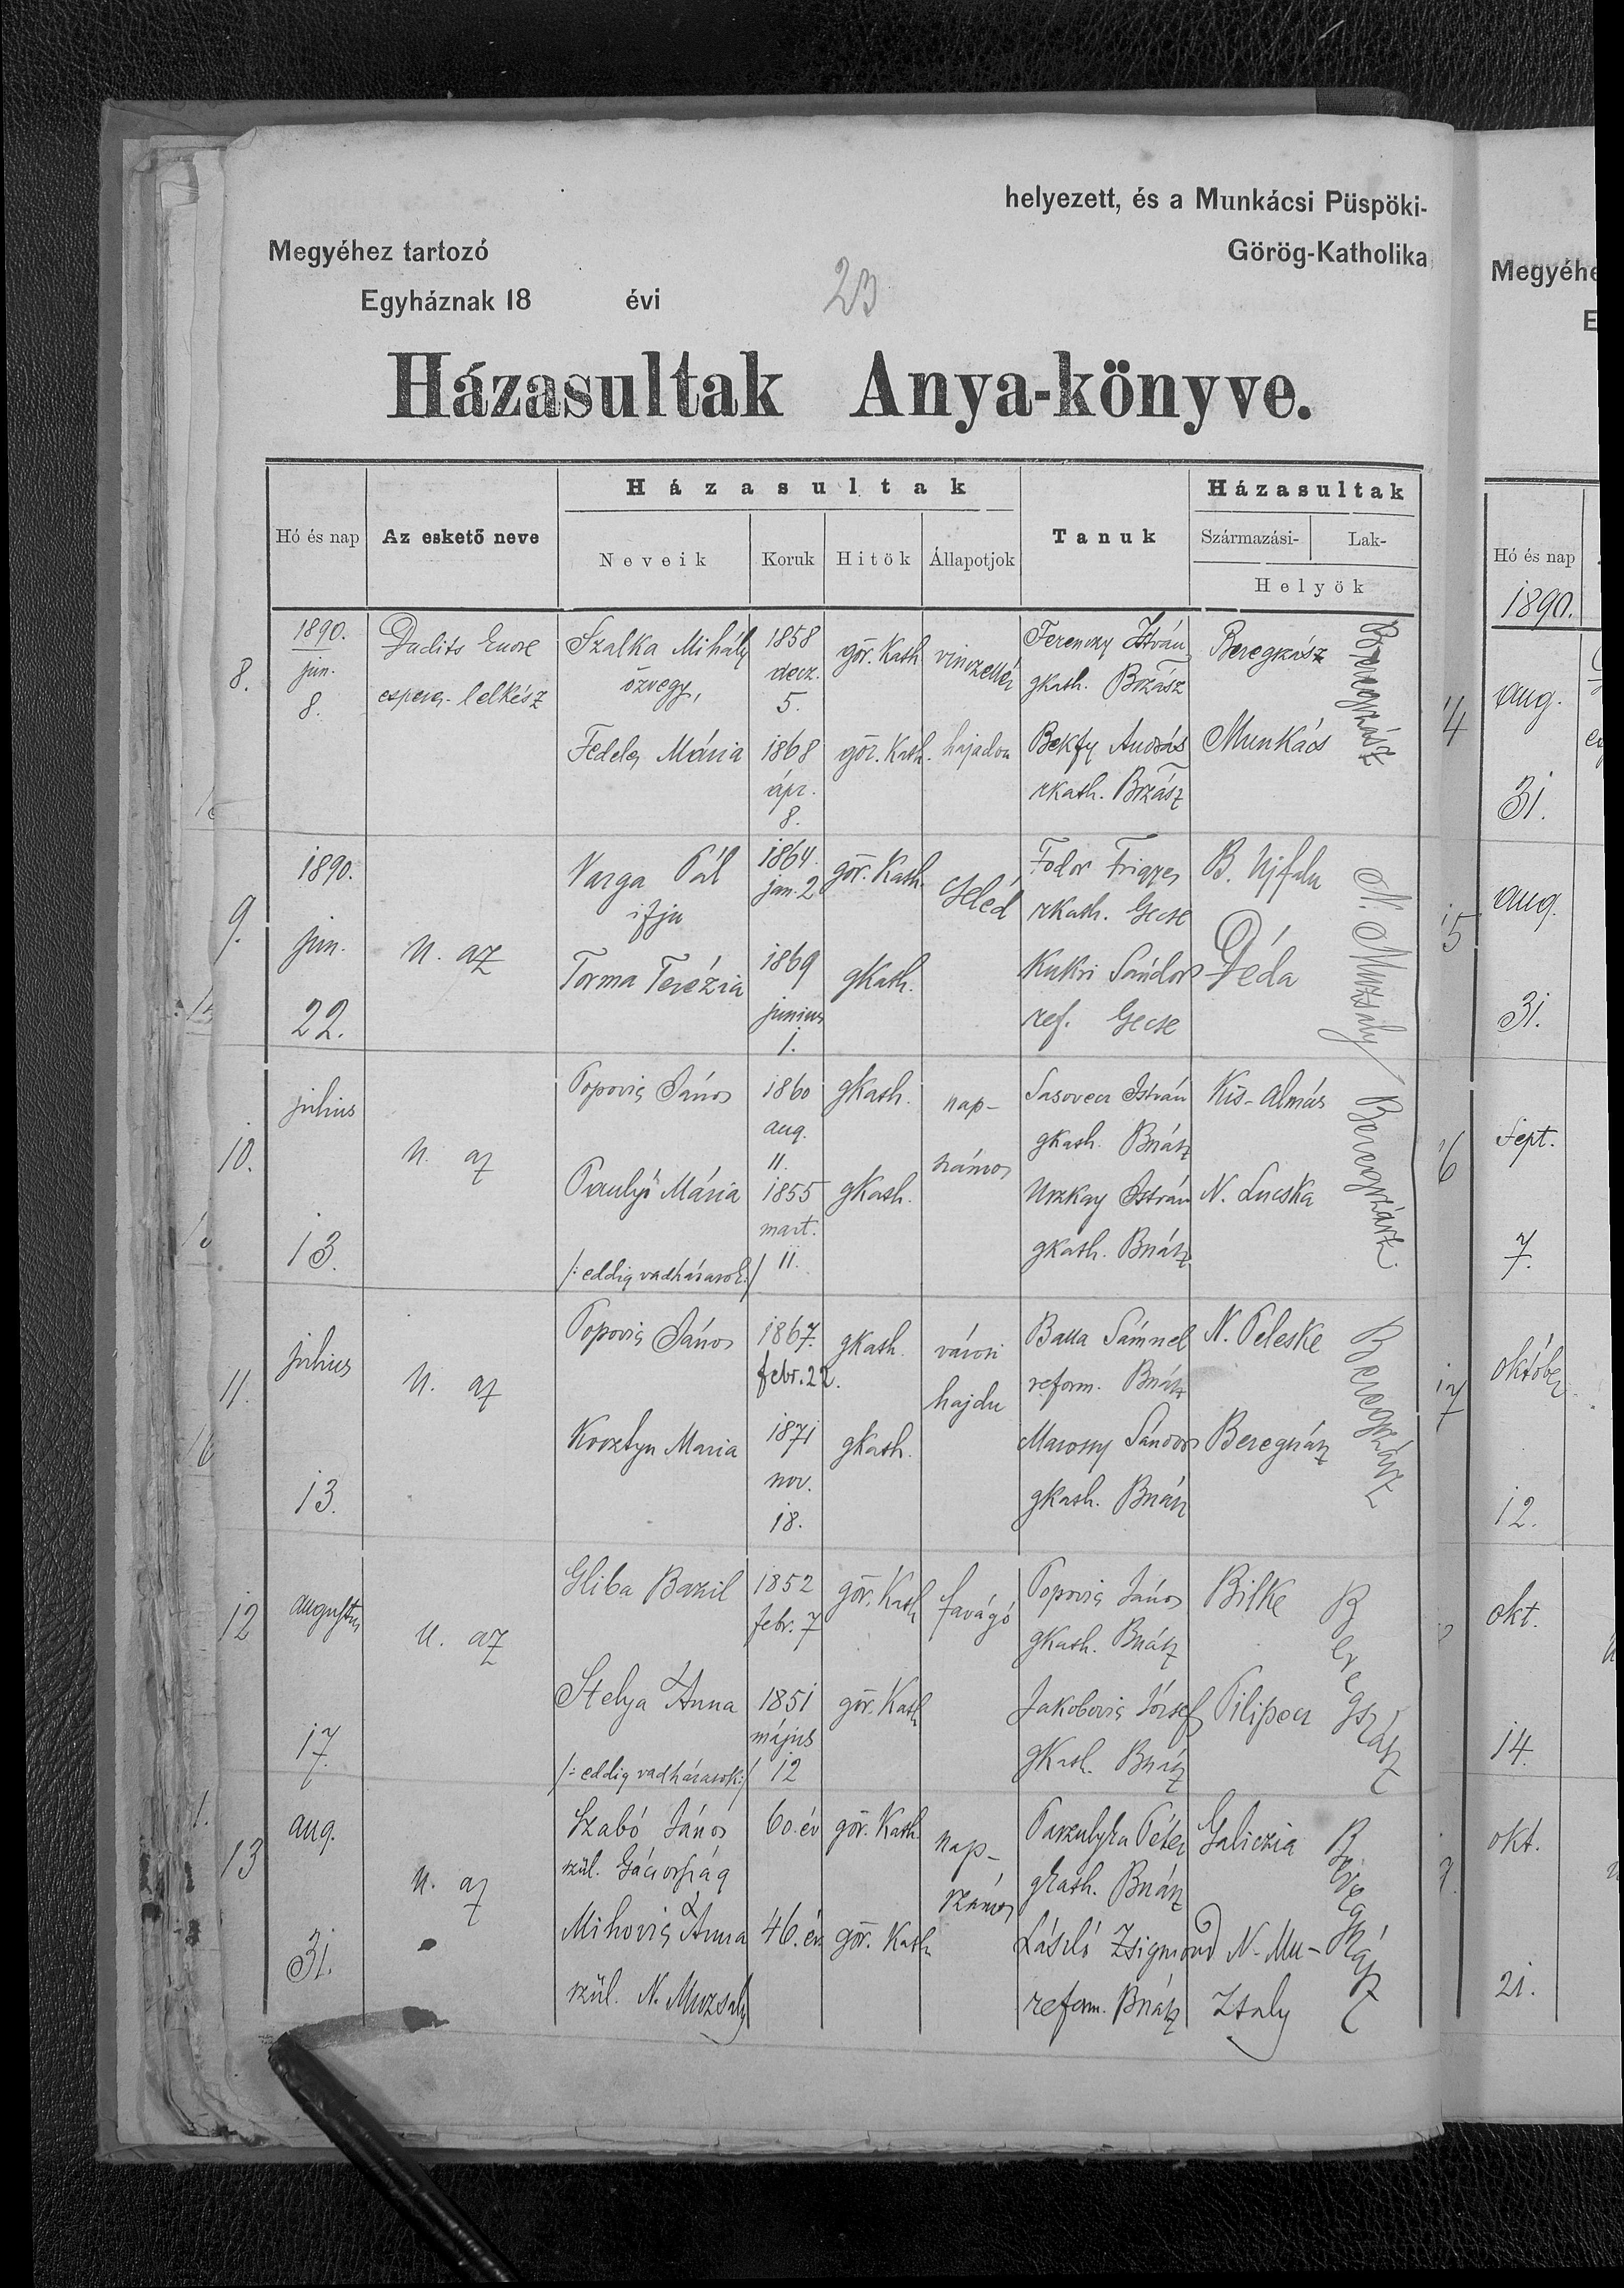 helyezett, és a Munkácsi Püspöki-
Megyéhez tartozó
Görög-Katholika
Egyháznak 18 évi
23
Házasultak Anya-könyve.
Hó és nap
Az eskető neve
Házasultak
Neveik
Koruk
Hitök
Állapotjok
Tanuk
Házasultak
Származási-
Lak-
Helyök
8.
1890.
jun.
8.
Dudits Enore
esperes-lelkész
Szalka Mihály
özvegy,
1858
decz.
5.
gör. Kath
vinczellér
Ferenczy István
gkath. Brzász
Beregszász
Beregszász
Fedeles Mária
1868
ápr.
8.
gör. Kath.
hajadon
Bekfy András
rkath. Brzász
Munkács
9.
1890.
jun.
22.
U. az
Varga Pál
ifju
1864.
jan. 2
gör. Kath.
Seled
Fodor Frigyes
rkath. Gecse
B. Ujfalu
N. Muzsaly
Torma Terézia
1869
junius
1.
gKath.
Kukri Sándor
ref. Gecse
Déda
10.
július
13.
U. az
Popovis János
1860
aug.
11.
gKath.
nap-
számos
Sasovecz István
gkath. Bszász
Kis-Almás
Beregszász
Mária
1855
mart.
11.
gKath.
Urzkay István
gkath. Bszász
N. Lucska
/: eddig vadházasok:/
11.
július
13.
U. az
Popovis János
1867.
febr. 22.
gKath.
városi
hajdu
Balla Sámuel
reform. Bszász
N. Peleske
Beregszász
Korztyn Maria
1871
nov.
18.
gKath.
Marossy Sándor
gKath. Bszász
Beregszász
12
augustus
17.
U. az
Gliba Bazil
1852
febr. 7
gör. Kath
favágó
Popovis János
gKath. Bszász
Bilke
Beregszász
Stelya Anna
1851
május
12
gör. Kath
Jakobovis József
gKath. Bszász
Pilipecz
/: eddig vadházasok:/
13
aug.
31.
U. az
Szabó János
szül. Gácsország
60. év
gör. Kath.
nap-
számos
Péter
gkath. Bszász
Galiczia
Beregszász
Mihovis Anna
szül. N. Muzsaly
46. év
gör. Kath
László Zsigmond
reform. Bszász
N-Mu-
zsaly
Megyéhe
E
Hó és nap
1890.
14
aug.
31.
15
aug.
31.
16
Sept.
7.
17
október
12.
okt.
14.
okt.
21.